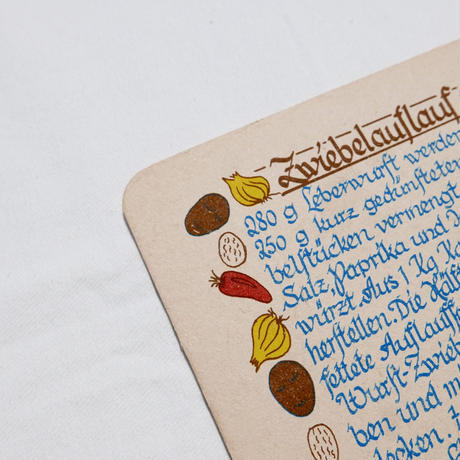 Zwiebelauflauf
280 g Leberwurst werden
250 g kurz gedünsteten
belstücken vermengt
Salz, Paprika und
würzt Aus 1 Kg
herstellen. Die Hälf
fettete Auflauff
Wurst-Zwieb
ben und m
locken.